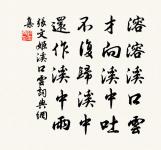 溶溶溪口雲
才向溪中吐
不復歸溪中
還作溪中雨
張文姬溪口雲詞典網
集